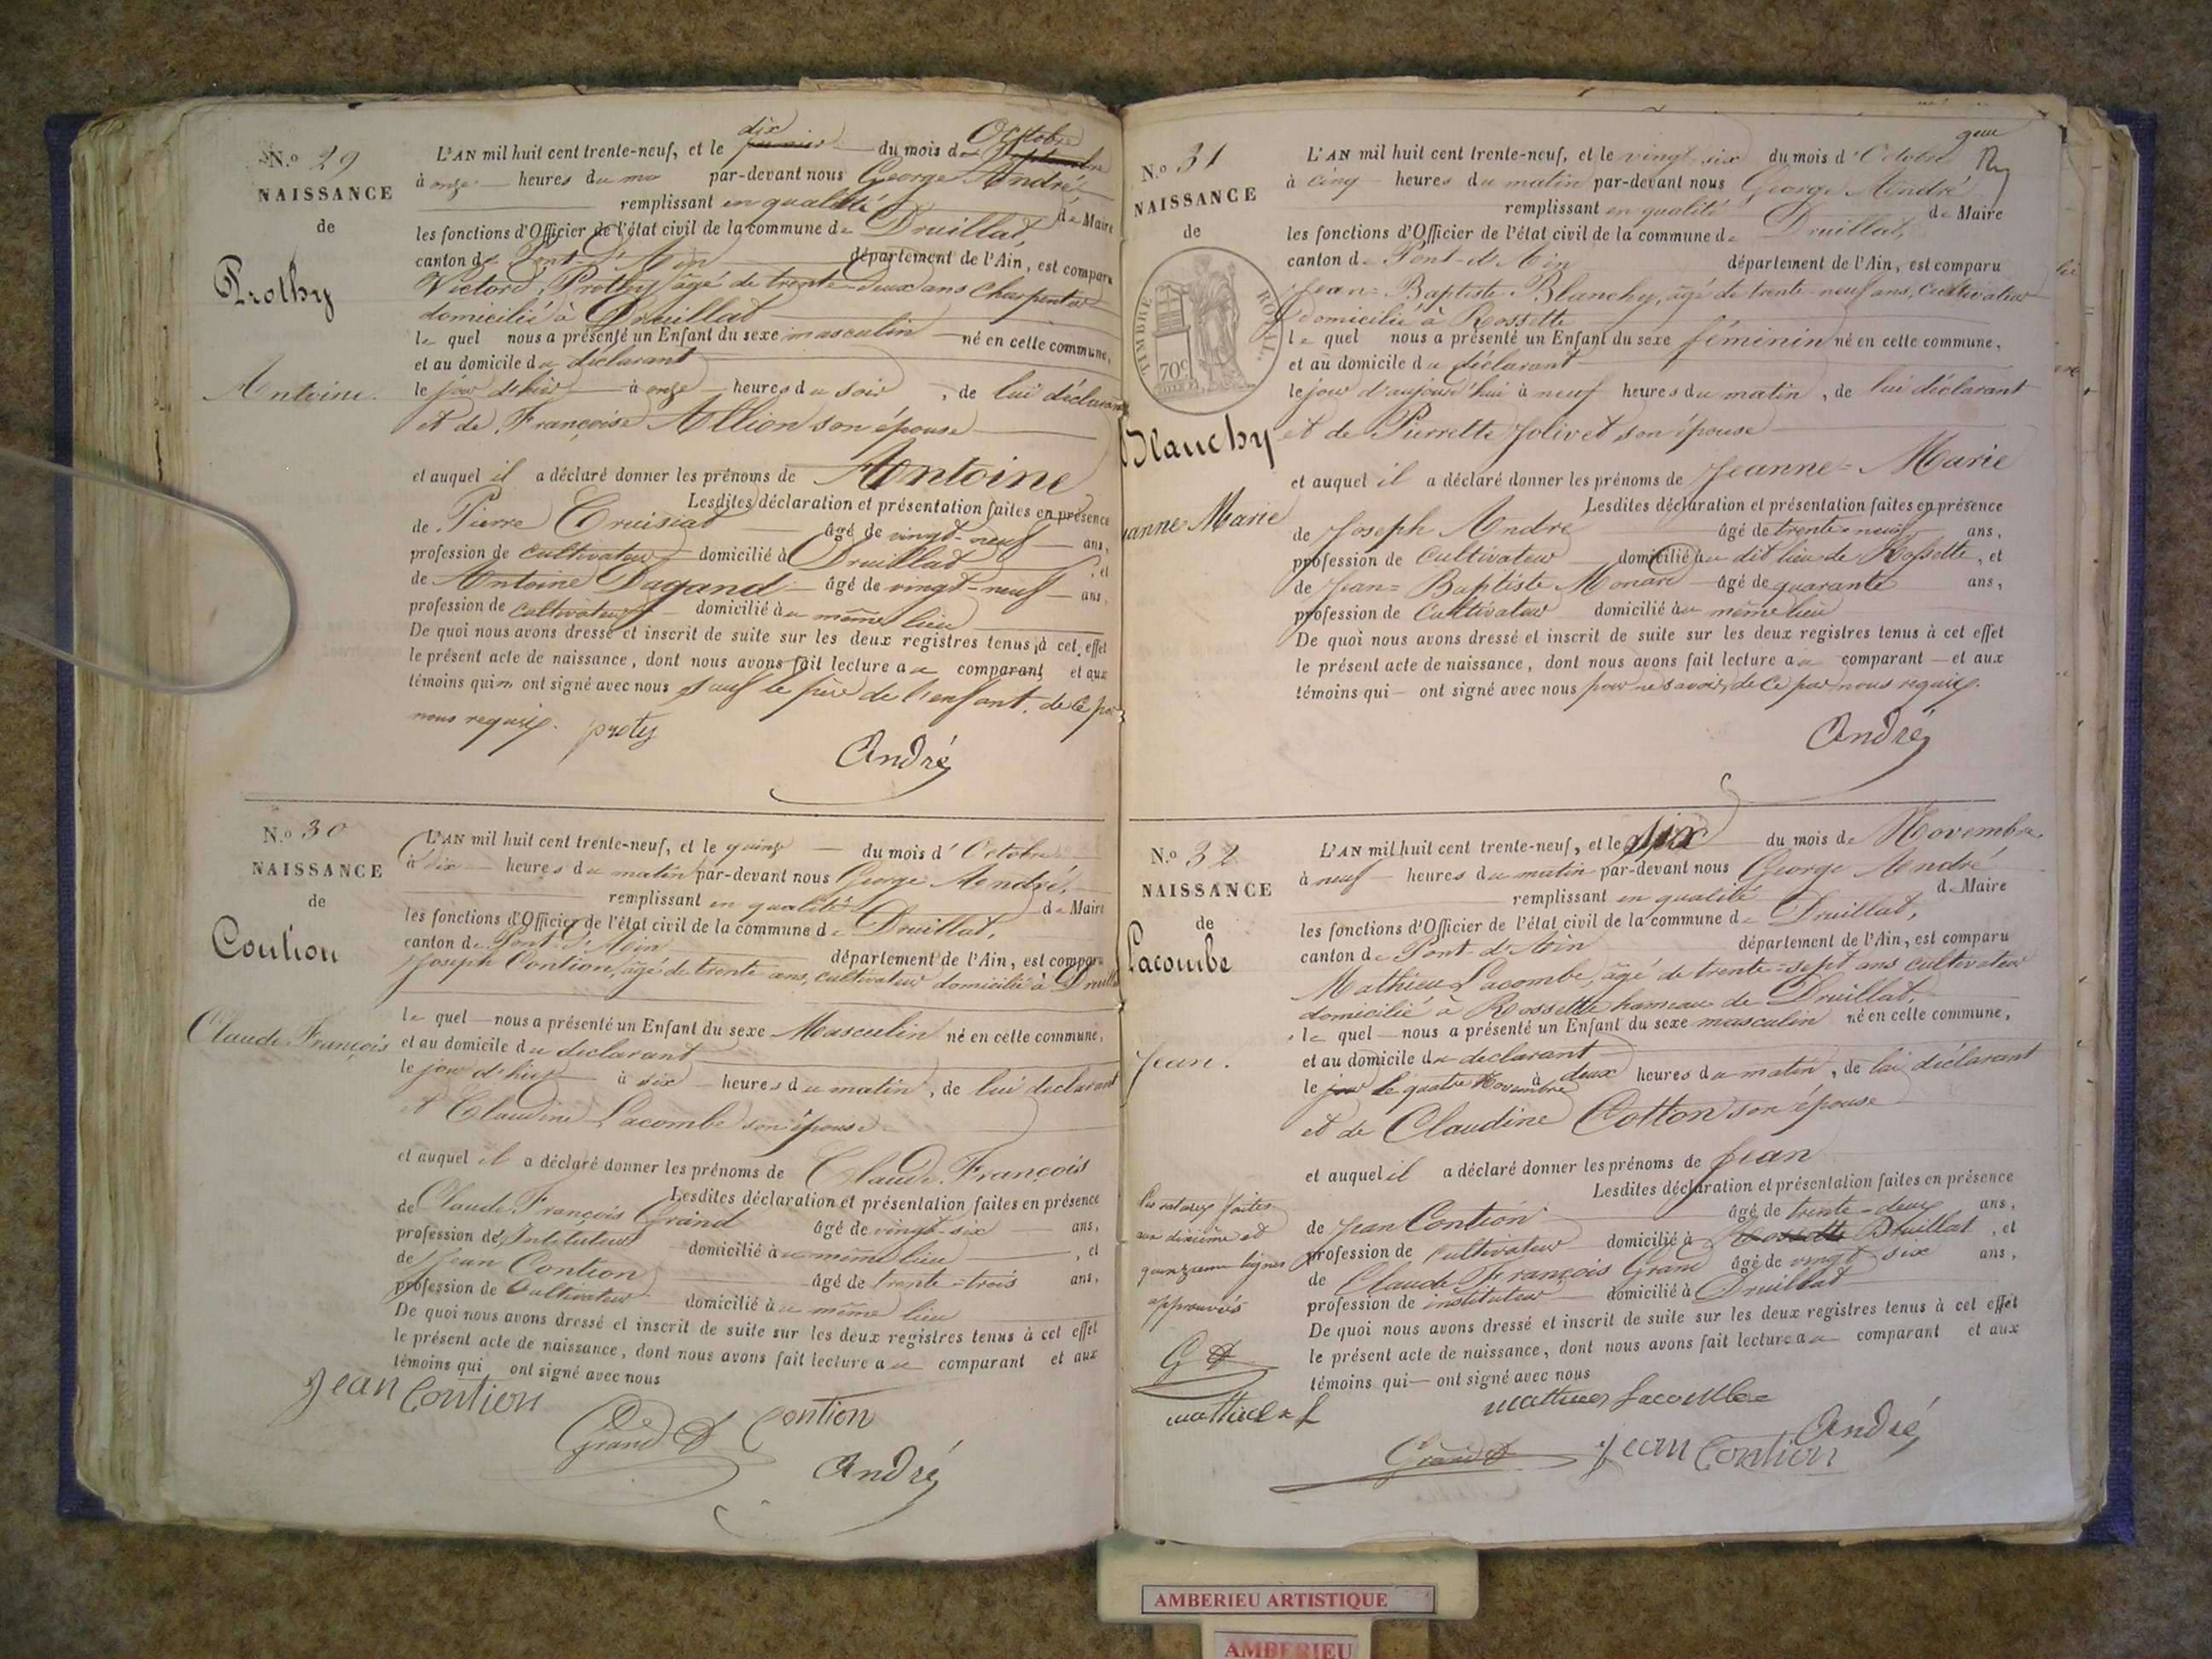 N.º 29
NAISSANCE
de
Prothy
Antoine.
dix Octobre
L'AN mil huit cent trente-neuf, et le du mois de
à onze heures du par-devant nous George André
remplissant en qualité de Maire
les fonctions d'Officier de l'état civil de la commune de Druillat,
canton de Pont-d'Ain département de l'Ain, est comparu
Victore Prothy âgé de trente-deux ans Charpentier
domicilié à Druillat
lequel nous a présenté un Enfant du sexe masculin né en cette commune,
et au domicile du déclarant
le jour d'hier à onze heures du soir, de lui déclarant
et de Françoise Allion son épouse
et auquel il a déclaré donner les prénoms de Antoine
Lesdites déclaration et présentation faites en présence
de Pierre Cruisiat âgé de vingt-neuf ans,
profession de cultivateur domicilié à Druillat, et
de Antoine Dagand âgé de vingt-neuf ans,
profession de cultivateur domicilié au même lieu
De quoi nous avons dressé et inscrit de suite sur les deux registres tenus à cet effet
le présent acte de naissance, dont nous avons fait lecture au comparant et aux
témoins qui n'ont signé avec nous sauf le père de l'enfant, de ce par
nous requis. proty
André
N.º 30
NAISSANCE
de
Contion
Claude François
L'AN mil huit cent trente-neuf, et le quinze du mois d'Octobre
à dix heures du matin par-devant nous George André,
remplissant en qualité de Maire
les fonctions d'Officier de l'état civil de la commune de Druillat,
canton de Pont-d'Ain département de l'Ain, est comparu
Joseph Contion, âgé de trente ans, cultivateur domicilié à Druillat
lequel nous a présenté un Enfant du sexe Masculin né en cette commune,
et au domicile du déclarant
le jour d'hier à six heures du matin, de lui déclarant
et Claudine Lacombe son épouse
et auquel il a déclaré donner les prénoms de Claude François
Lesdites déclaration et présentation faites en présence
de Claude François Grand âgé de vingt-six ans,
profession de Instituteur domicilié au même lieu, et
de Jean Contion âgé de trente-trois ans,
profession de Cultivateur domicilié au même lieu
De quoi nous avons dressé et inscrit de suite sur les deux registres tenus à cet effet
le présent acte de naissance, dont nous avons fait lecture au comparant et aux
témoins qui ont signé avec nous
Jean Contion
Grand Contion
André
N.º 31
NAISSANCE
de
TIMBRE ROYAL.
70c
Blanchy
Jeanne Marie
L'AN mil huit cent trente-neuf, et le vingt-six du mois d'Octobre
à cinq heures du matin par-devant nous George André
remplissant en qualité de Maire
les fonctions d'Officier de l'état civil de la commune de Druillat,
canton de Pont-d'Ain département de l'Ain, est comparu
Jean-Baptiste Blanchy, âgé de trente-neuf ans, Cultivateur
domicilié à Rossette
lequel nous a présenté un Enfant du sexe féminin né en cette commune,
et au domicile du déclarant
le jour d'aujourd'hui à neuf heures du matin, de lui déclarant
et de Pierrette Jolivet son épouse
et auquel il a déclaré donner les prénoms de Jeanne-Marie
Lesdites déclaration et présentation faites en présence
de Joseph André âgé de trente-neuf ans,
profession de Cultivateur domicilié au dit lieu de Rossette, et
de Jean-Baptiste Monard âgé de quarante ans,
profession de Cultivateur domicilié au même lieu
De quoi nous avons dressé et inscrit de suite sur les deux registres tenus à cet effet
le présent acte de naissance, dont nous avons fait lecture au comparant et aux
témoins qui ont signé avec nous pour ne savoir, de ce par nous requis.
André
N.º 32
NAISSANCE
de
Lacombe
Jean.
L'AN mil huit cent trente-neuf, et le six du mois de Novembre
à neuf heures du matin par-devant nous George André
remplissant en qualité de Maire
les fonctions d'Officier de l'état civil de la commune de Druillat,
canton de Pont-d'Ain département de l'Ain, est comparu
Mathieu Lacombe, âgé de trente-sept ans cultivateur
domicilié à Rossette hameau de Druillat,
lequel nous a présenté un Enfant du sexe masculin né en cette commune,
et au domicile du déclarant
le jour le quatre Novembre à deux heures du matin, de lui déclarant
et de Claudine Cotton son épouse
et auquel il a déclaré donner les prénoms de Jean
Lesdites déclaration et présentation faites en présence
de Jean Contion âgé de trente-deux ans,
profession de Cultivateur domicilié à Rossette Druillat, et
de Claude François Grand âgé de vingt six ans,
profession de instituteur domicilié à Druillat
De quoi nous avons dressé et inscrit de suite sur les deux registres tenus à cet effet
le présent acte de naissance, dont nous avons fait lecture au comparant et aux
témoins qui ont signé avec nous
Les ratures faites
aux dixième et
quinzième lignes
approuvés
mathieu Lacombe
André
Grand Jean Contion
AMBERIEU ARTISTIQUE
AMBERIEU